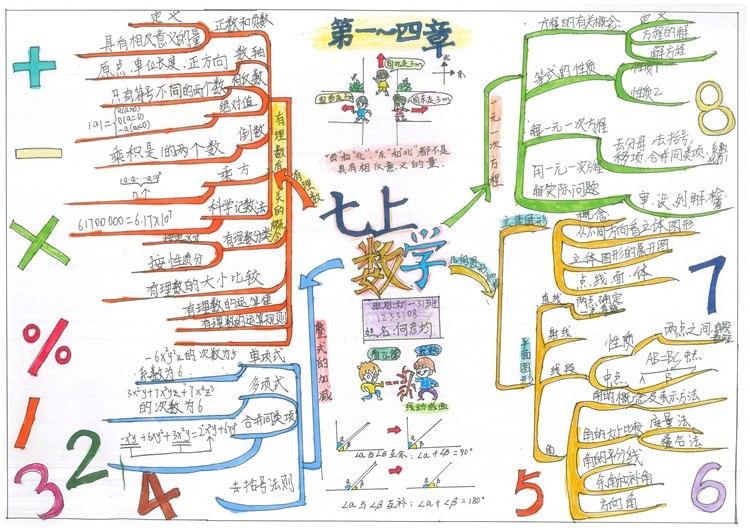 第一~四章
向北走3m
向西走3m
向东走3m
北
东
"西"和"北"、"东"和"北"都不是
具有相反意义的量.
七上
数学
班级:初一31班
1233108
线动成面
∠α与∠β互余:∠α+∠β=90°
∠α与∠β互补:∠α+∠β=180°
有理数
有理数有关的概念
定义
正数和负数
具有相反意义的量
原点,单位长度,正方向
数轴
只有符号不同的两个数
相反数
绝对值
|a|=
a(a>0)
0(a=0)
-a(a<0)
乘积是1的两个数
倒数
a·a···a=aⁿ
n个
乘方
61700000=6.17×10⁷
科学记数法
按定义分
按性质分
有理数分类
有理数的大小比较
有理数的运算律
有理数的运算规则
整式的加减
单项式
系数为6
多项式
3x²y+7x²yz+7x²z³
的次数为6
合并同类项
去括号法则
一元一次方程
方程的有关概念
定义
方程的解
解方程
等式的性质
性质1
性质2
解一元一次方程
去分母,去括号,
移项,合并同类项,
用一元一次方程
解实际问题
审,设,列,解,检
几何图形初步
立体图形
概念
从不同方向看立体图形
立体图形的展开图
点,线,面,体
平面图形
直线
两点确定
一条直线
射线
线段
性质
两点之间,
中点
AB=BC
A B
角
角的概念及表示方法
角的大小比较
度量法
叠合法
角的平分线
余角和补角
方向角
+
-
×
%
1
2
3
4
5
6
7
8